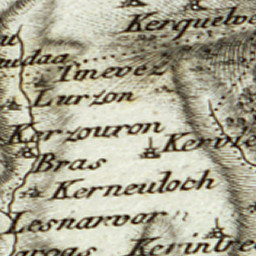 Kerquelve
udaa
Tinevez
Lurzon
Kerzouron
Kervie
Bras
Kerneuloch
Lesnarvor
arogs
Kerintre